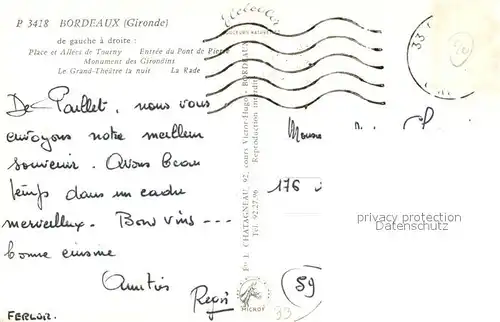 P 3418 BORDEAUX (Gironde)
de gauche à droite :
Place et Allées de Tourny Entrée du Pont de Pierre
Monument des Girondins
Le Grand-Théâtre la nuit La Rade
De Paillet, nous vous
envoyons notre meilleur
souvenir. Avons beau
temps dans un cadre
merveilleux. Bons vins ---
bonne cuisine
Amitiés
Regis
FERLOR.
COULEURS NATURELLES
Ets E. CHATAGNEAU, 92, cours Victor-Hugo - BORDEAUX
Tél. 92.27.96 Reproduction interdite
MICROY
33
176
privacy protection
Datenschutz
59
33